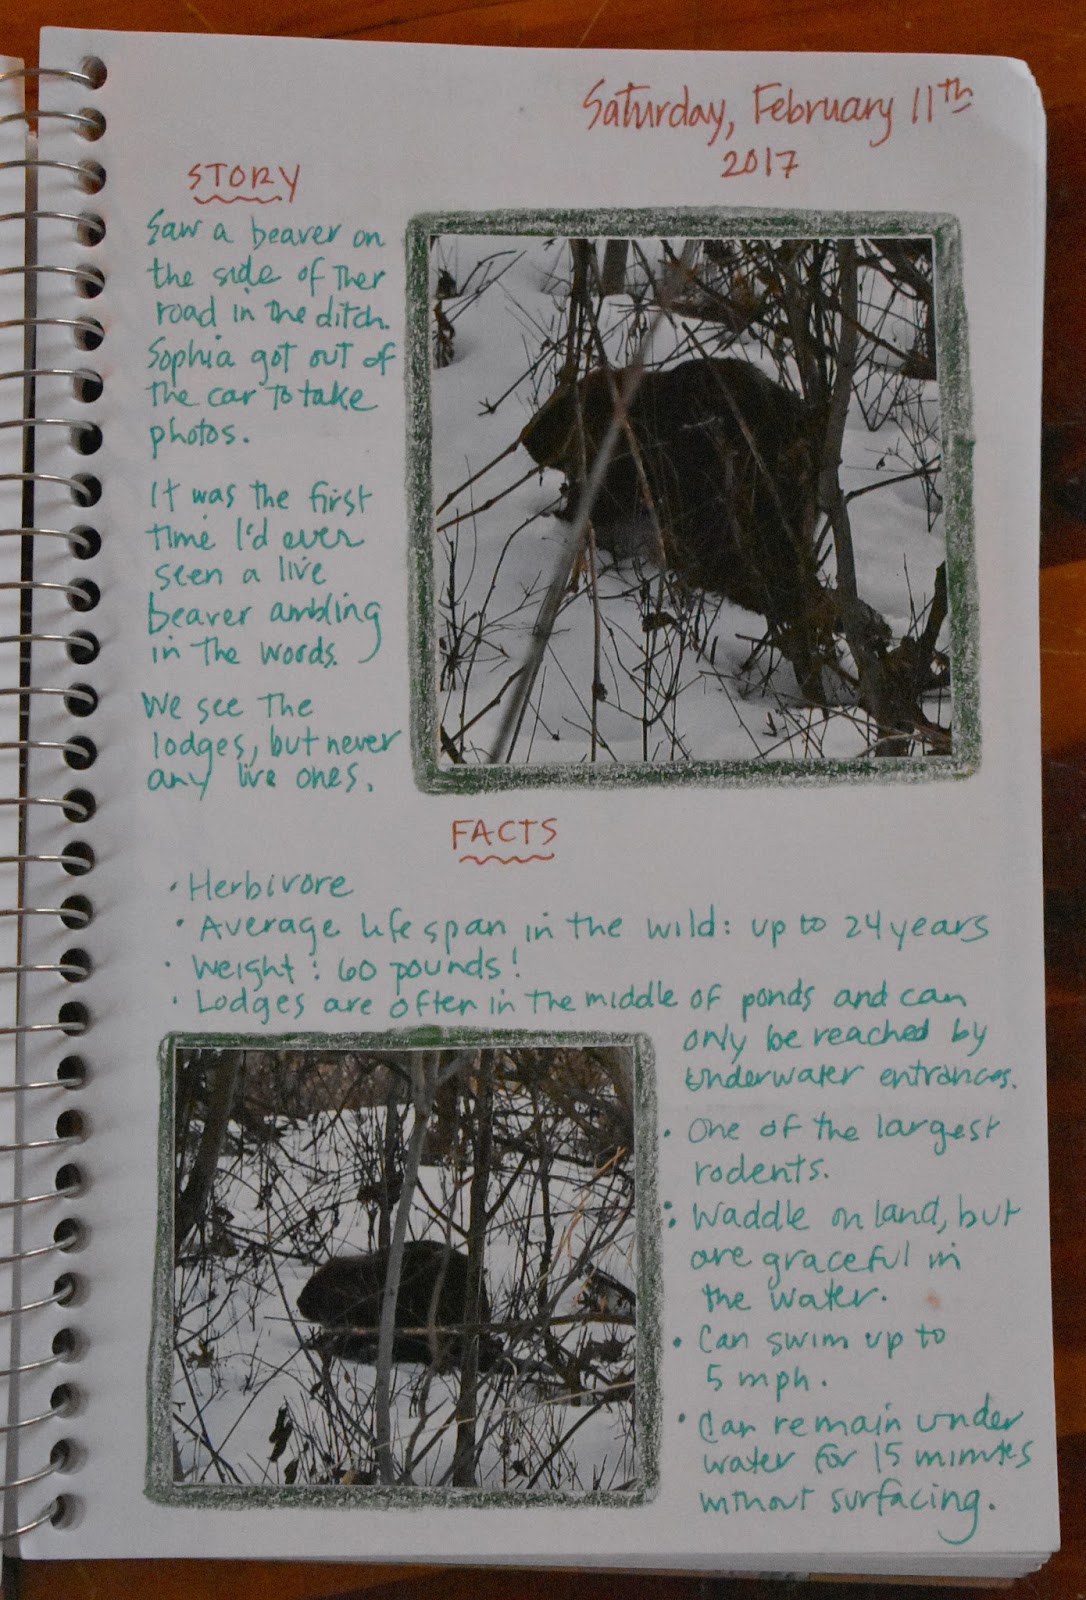 Saturday, February 11th
2017
STORY
Saw a beaver on
the side of ther
road in the ditch.
Sophia got out of
the car to take
photos.
It was the first
time I'd ever
seen a live
beaver ambling
in the words.
We see the
lodges, but never
any live ones.
FACTS
• Herbivore
• Average life span in the wild: up to 24 years
• Weight: 60 pounds!
• Lodges are often in the middle of ponds and can
only be reached by
underwater entrances.
• One of the largest
rodents.
• Waddle on land, but
are graceful in
the water.
• Can swim up to
5 mph.
• Can remain under
water for 15 minutes
without surfacing.